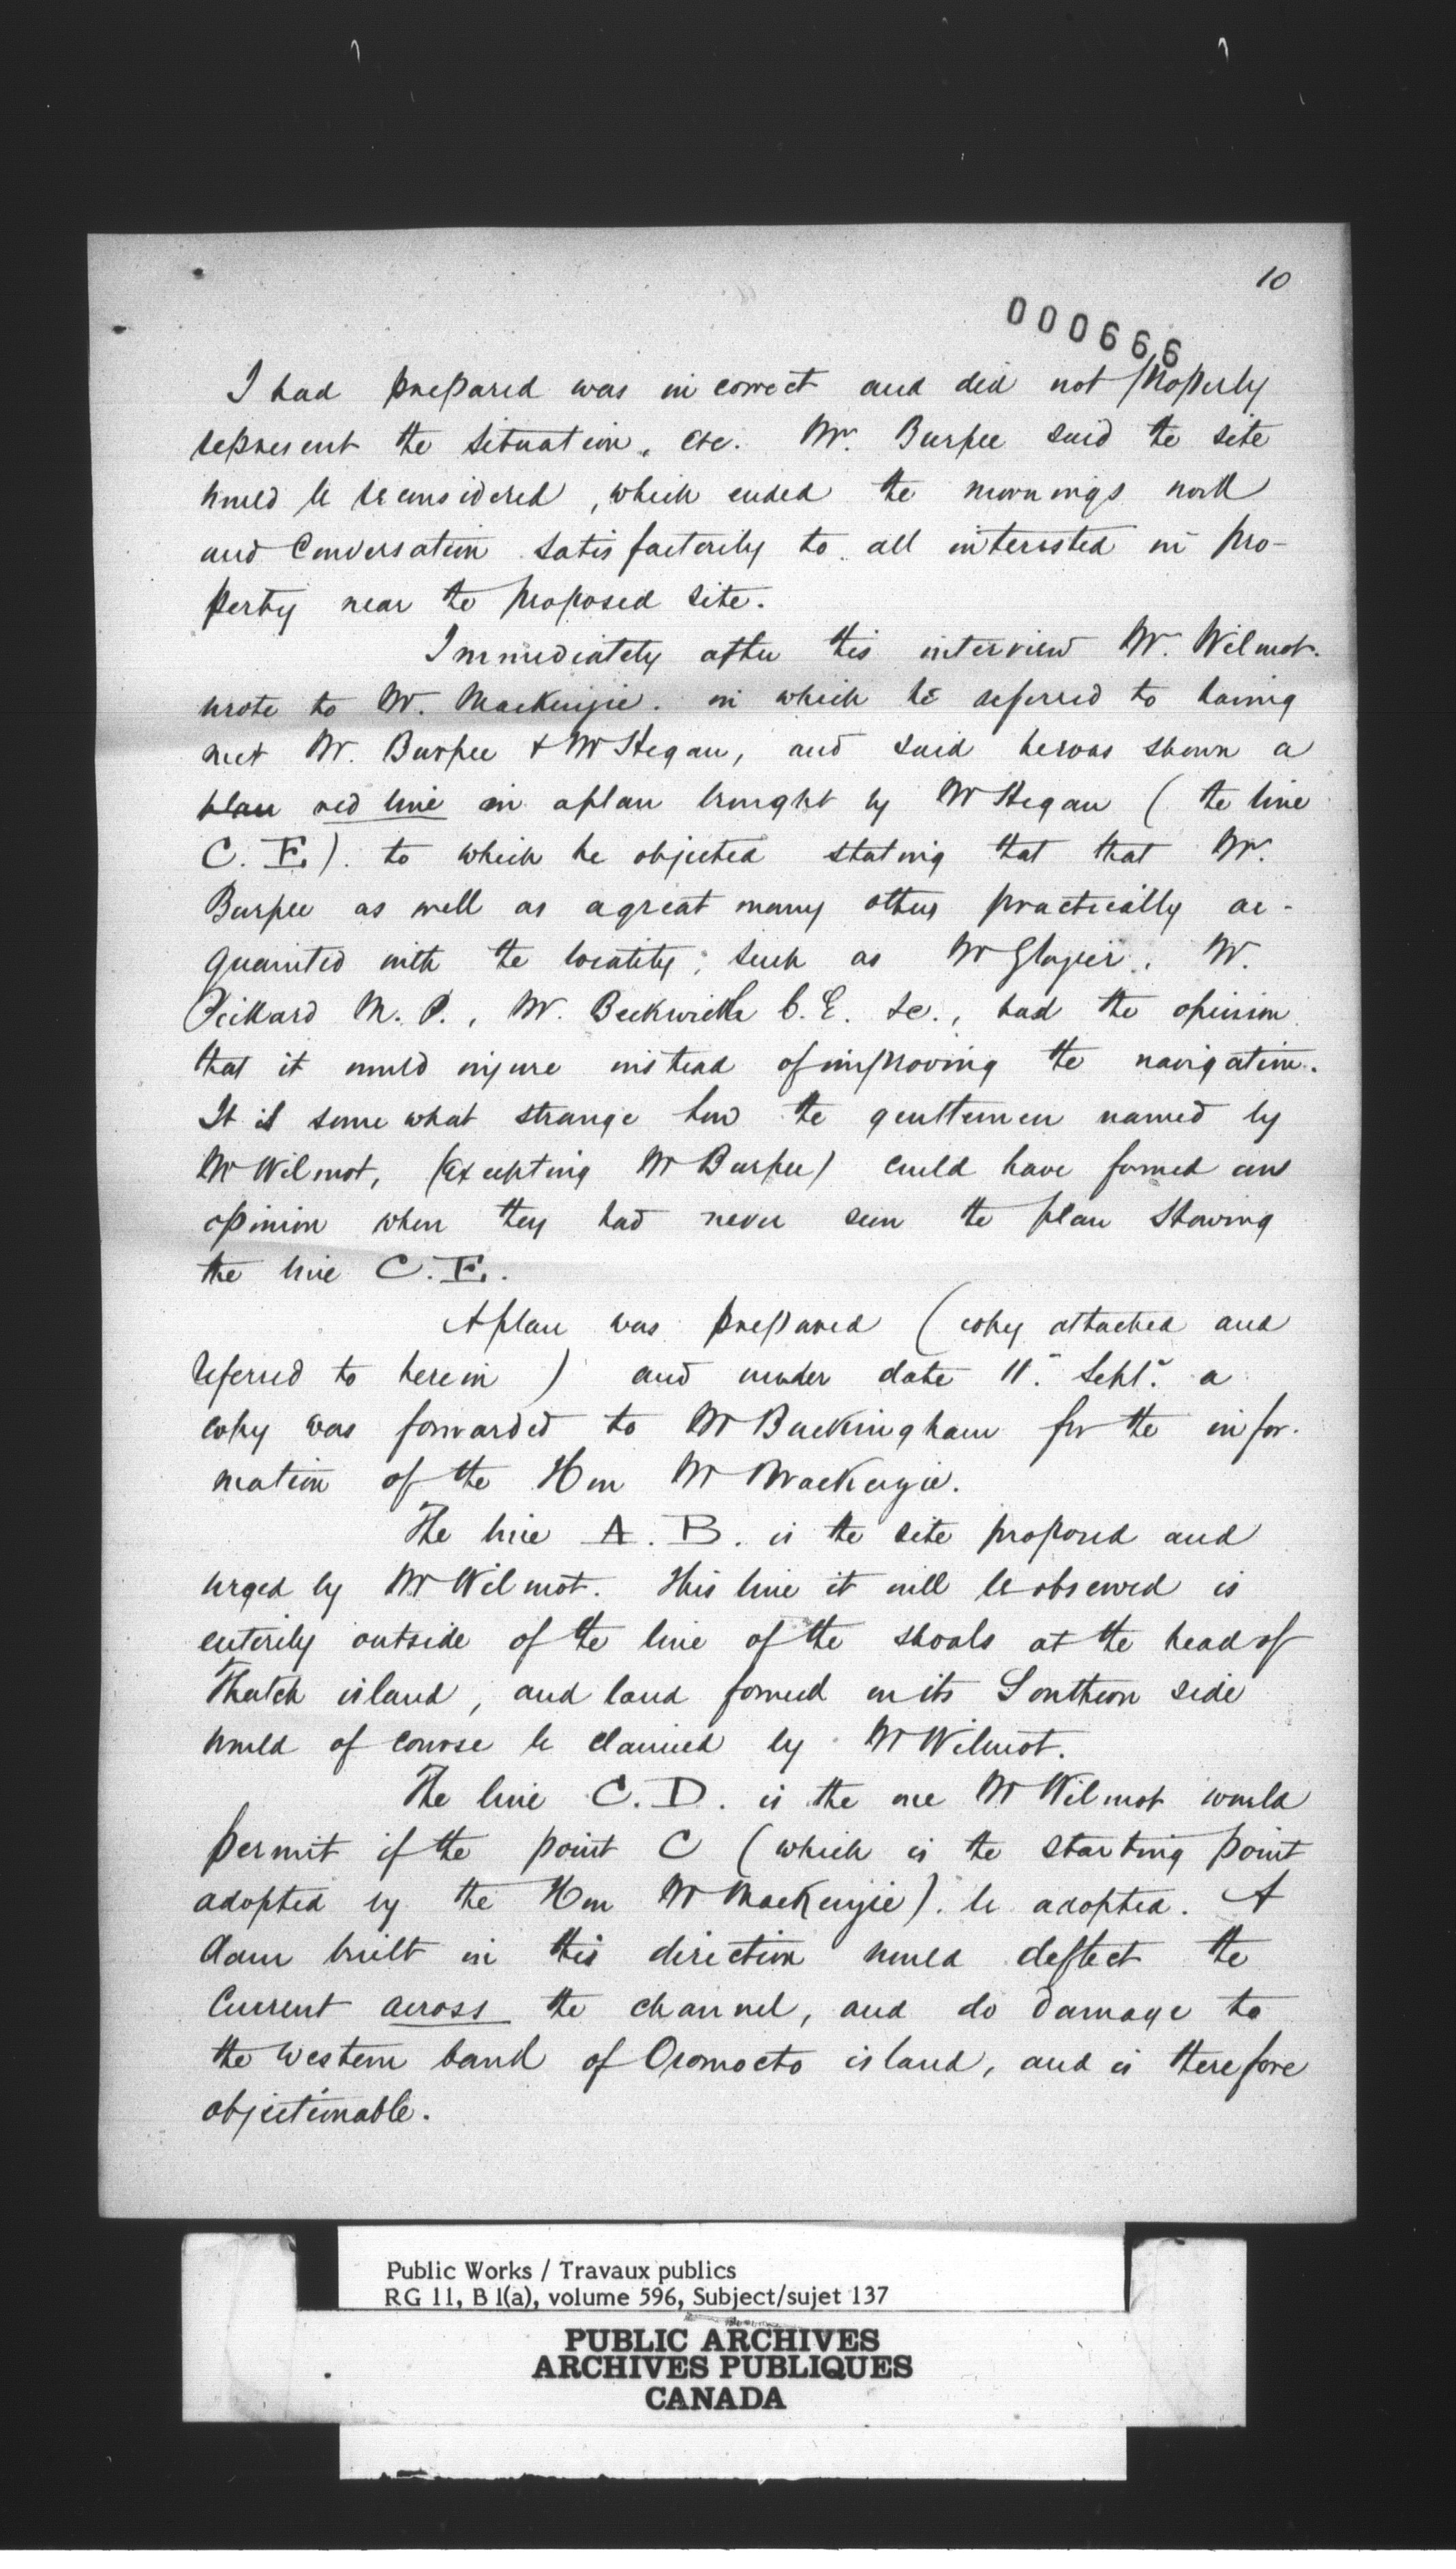 10
000666
I had prepared was in correct and did not properly
represent the situation, etc. Mr. Burpee said the site
would be reconsidered, which ended the mornings work
and conversation satisfactorily to all interested in pro-
perty near the proposed site.
Immediately after this interview Mr. Wilmot.
wrote to Mr. MacKenzie. in which he referred to having
met Mr. Burpee & Mr Stegan, and said he was shown a
plan red line on a plan brought by Mr Stegan (the line
C. E.). to which he objected stating that that Mr.
Burpee as well as a great many others practically ac-
quainted with the locality; such as Mr Glazier, Mr.
Pickard M. P., Mr. Beckwith C. E. &c., had the opinion
that it would injure instead of improving the navigation.
It is some what strange how the gentlemen named by
Mr Wilmot, (excepting Mr Burpee) could have formed an
opinion when they had never seen the plan showing
the line C. E.
A plan was prepared (copy attached and
referred to herein) and under date 11th Sept. a
copy was forwarded to Mr Buckingham for the infor-
mation of the Hon Mr MacKenzie.
The line A. B. is the site proposed and
urged by Mr Wilmot. This line it will be observed is
entirely outside of the line of the shoals at the head of
Thatch island, and land formed on its Southern side
would of course be claimed by Mr Wilmot.
The line C. D. is the one Mr Wilmot would
permit if the point C (which is the starting point
adopted by the Hon Mr MacKenzie). be adopted. A
dam built in this direction would deflect the
current across the channel, and do damage to
the western bank of Oromocto island, and is therefore
objectionable.
Public Works / Travaux publics
RG 11, B 1(a), volume 596, Subject/sujet 137
PUBLIC ARCHIVES
ARCHIVES PUBLIQUES
CANADA